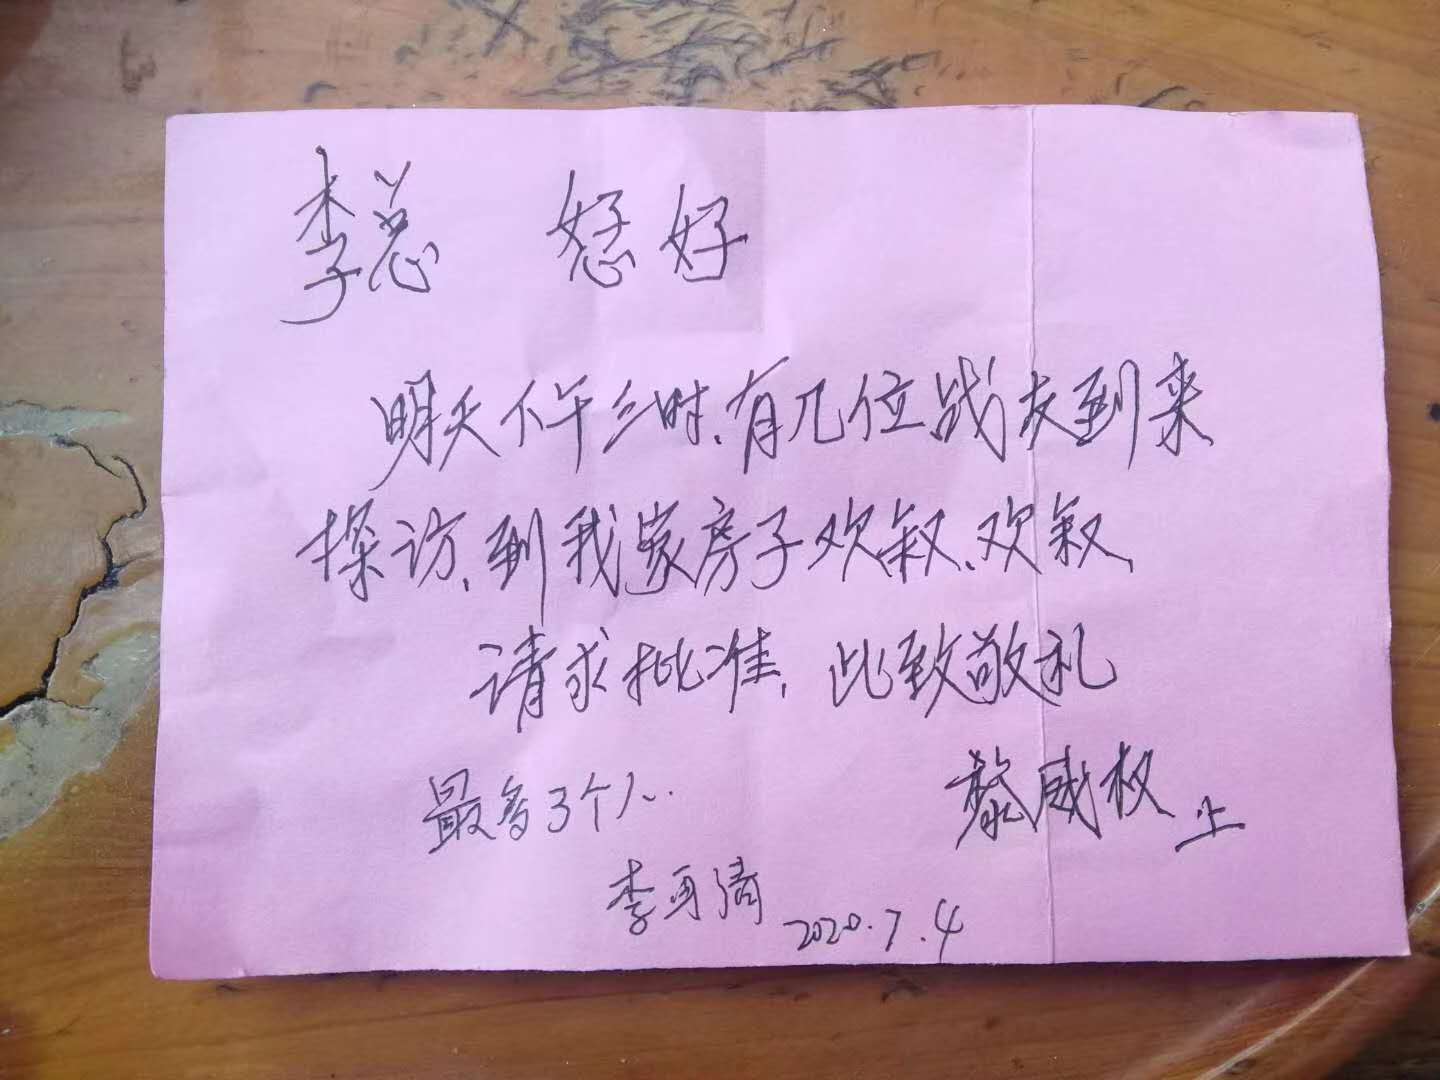 李总 恕好
明天下午三时.有几位战友到来
探访.到我家房子欢叙.欢叙.
请求批准.此致敬礼
黎威权上
最多3个人.
李再清
2020.7.4